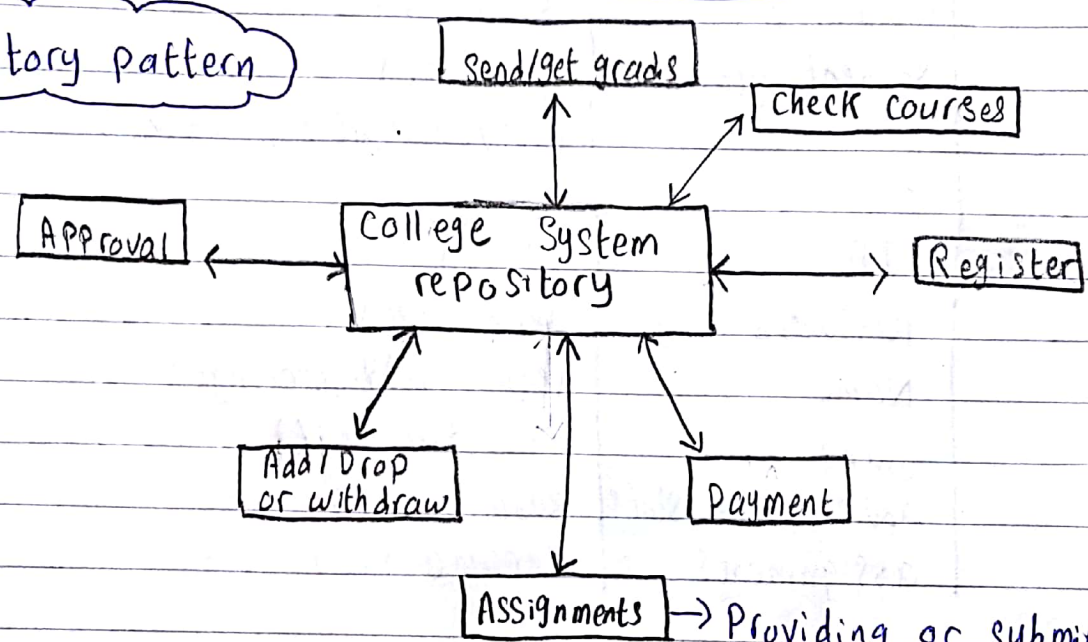 tory pattern
Send/get grads
Check Courses
Approval
College System
repository
Register
Add/Drop
or withdraw
Payment
Assignments → Providing or submi